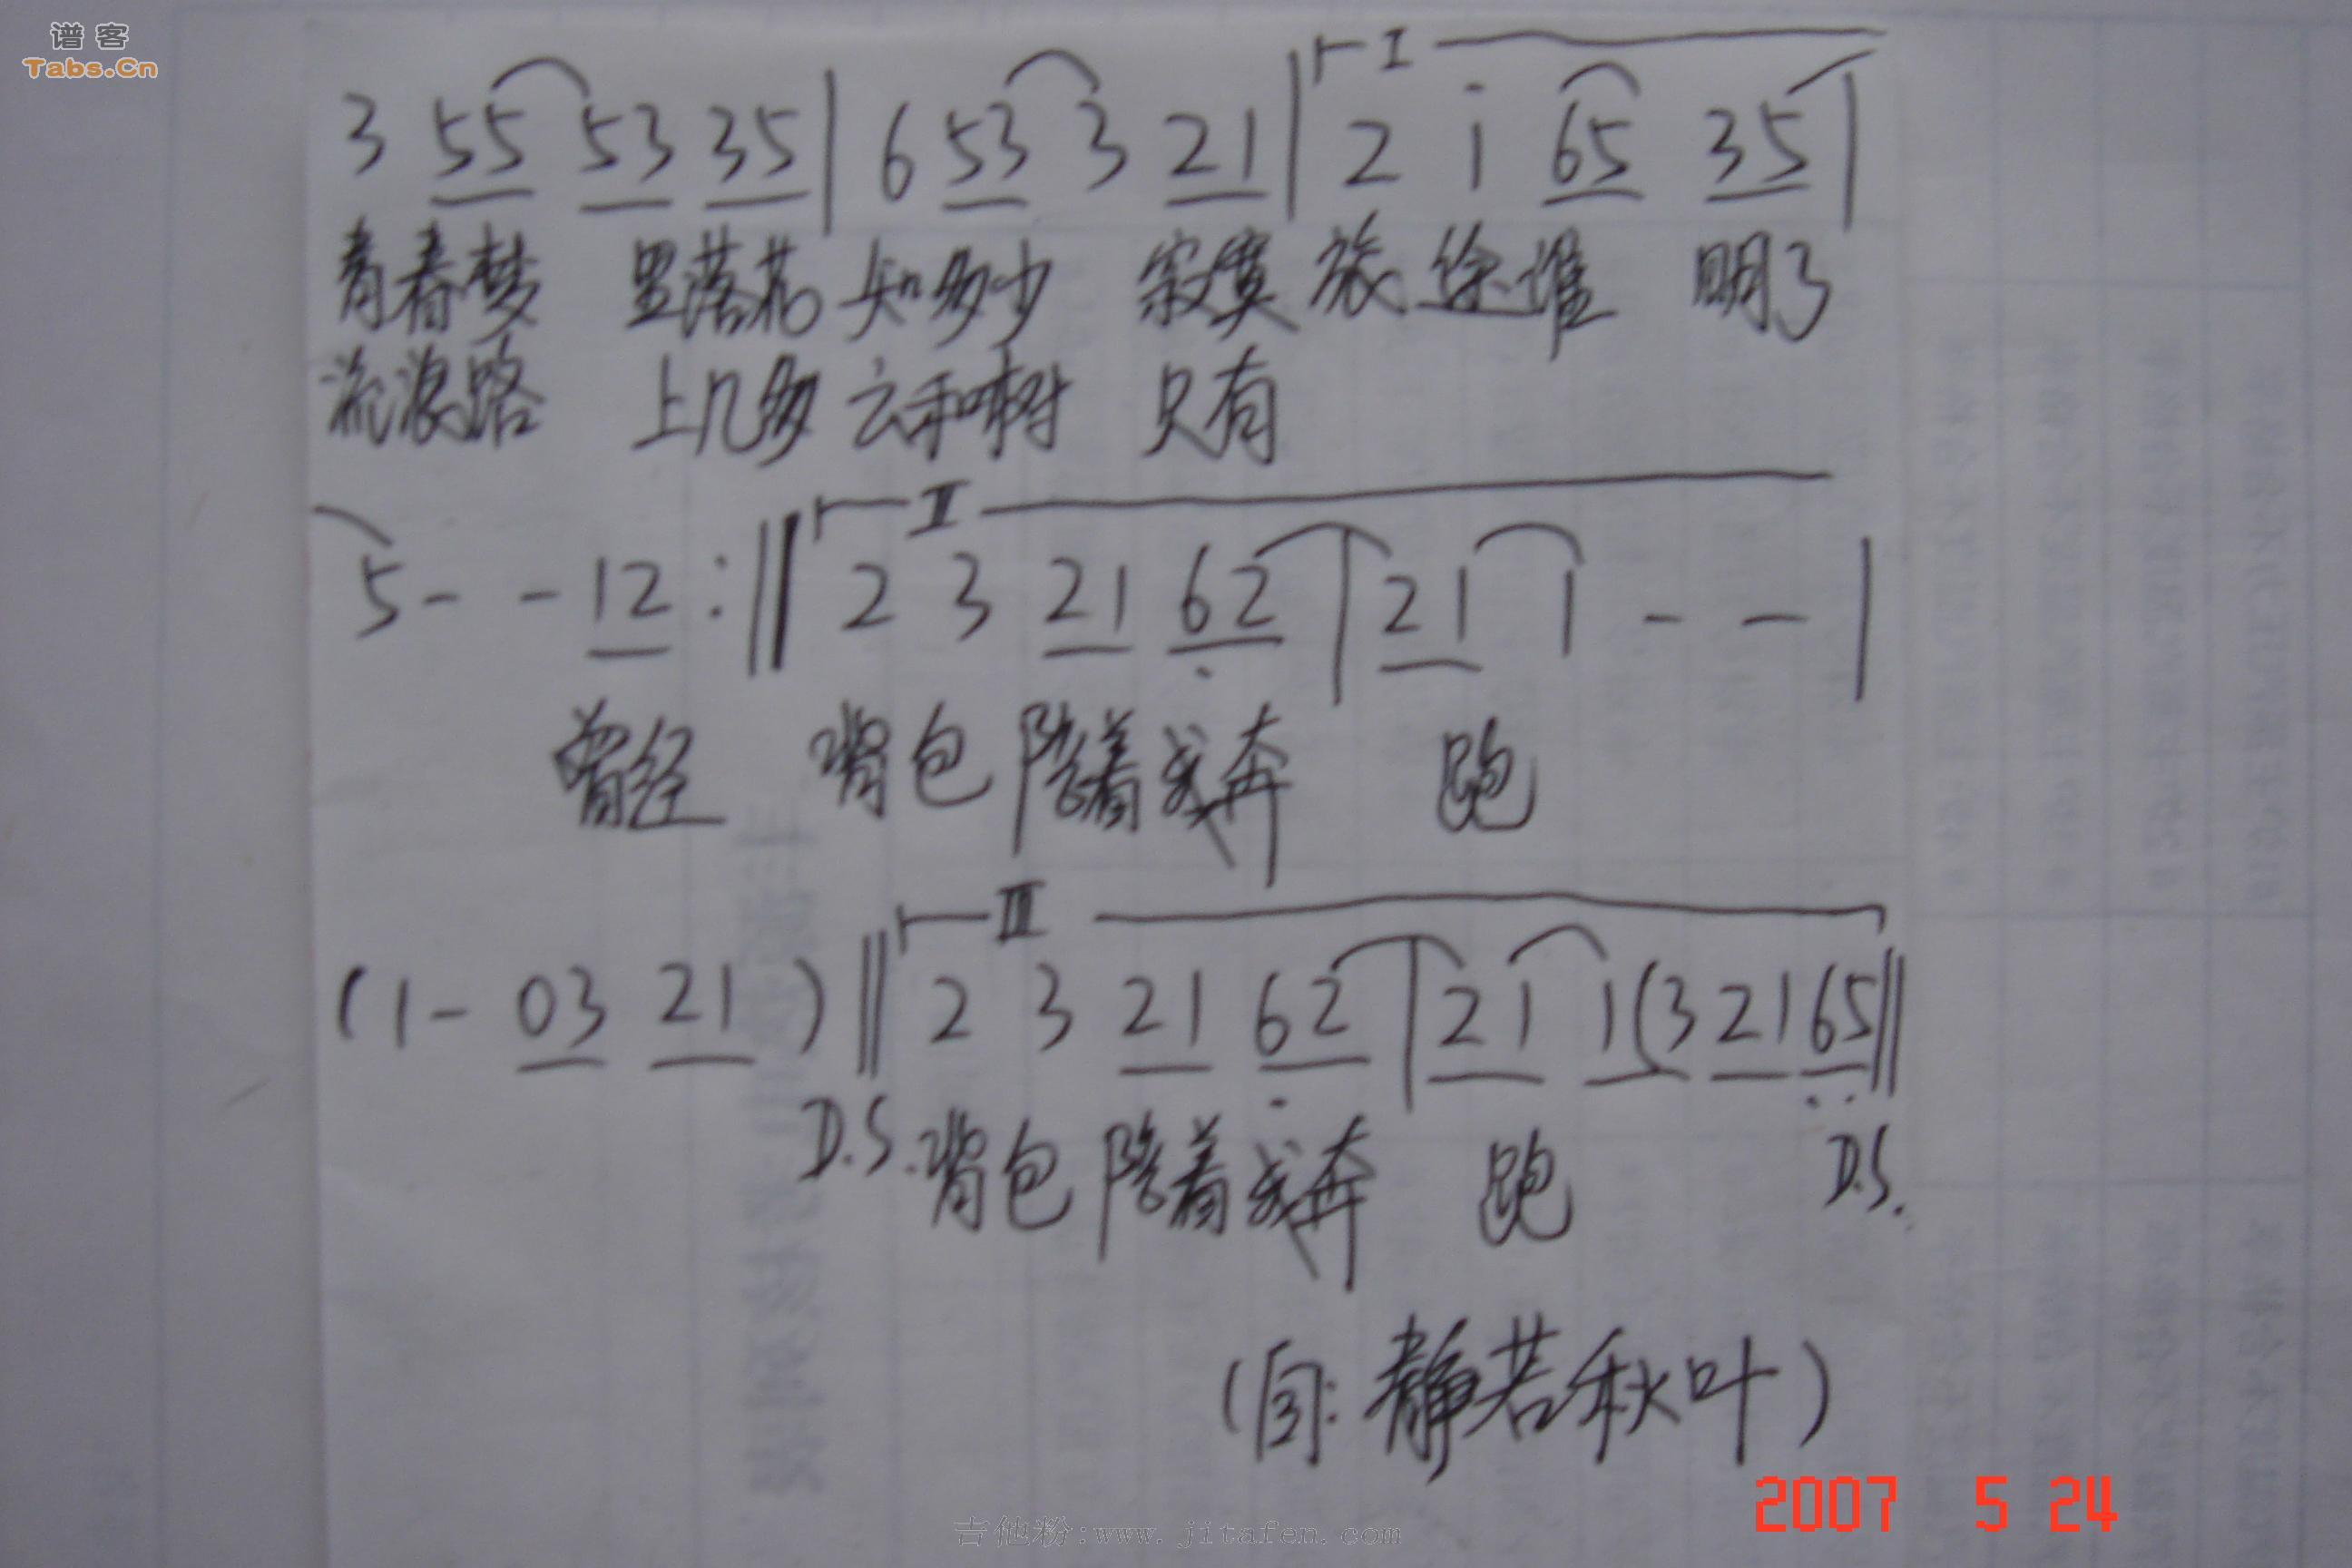 谱客
Tabs.Cn
Ⅰ
3 55 53 35 | 6 53 3 21 | 2 i 65 35 |
青春梦 里落花 知多少 寂寞 旅途谁 明了
流浪路 上几多 云和树 只有
Ⅱ
5 - - 12 :‖ 2 3 21 6̣2 | 21 1 - - |
曾经 背包 陪着我奔 跑
Ⅲ
(1 - 03 21) ‖ 2 3 21 6̣2 | 21 1(3 21 6̣5̣ ‖
D.S. 背包 陪着我奔 跑 D.S.
静若秋叶)
2007 5 24
吉他粉:www.jitafen.com